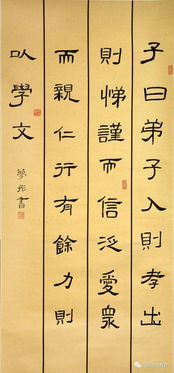 子曰弟子入則孝出
則悌謹而信泛愛眾
而親仁行有餘力則
以學文
夢彤書